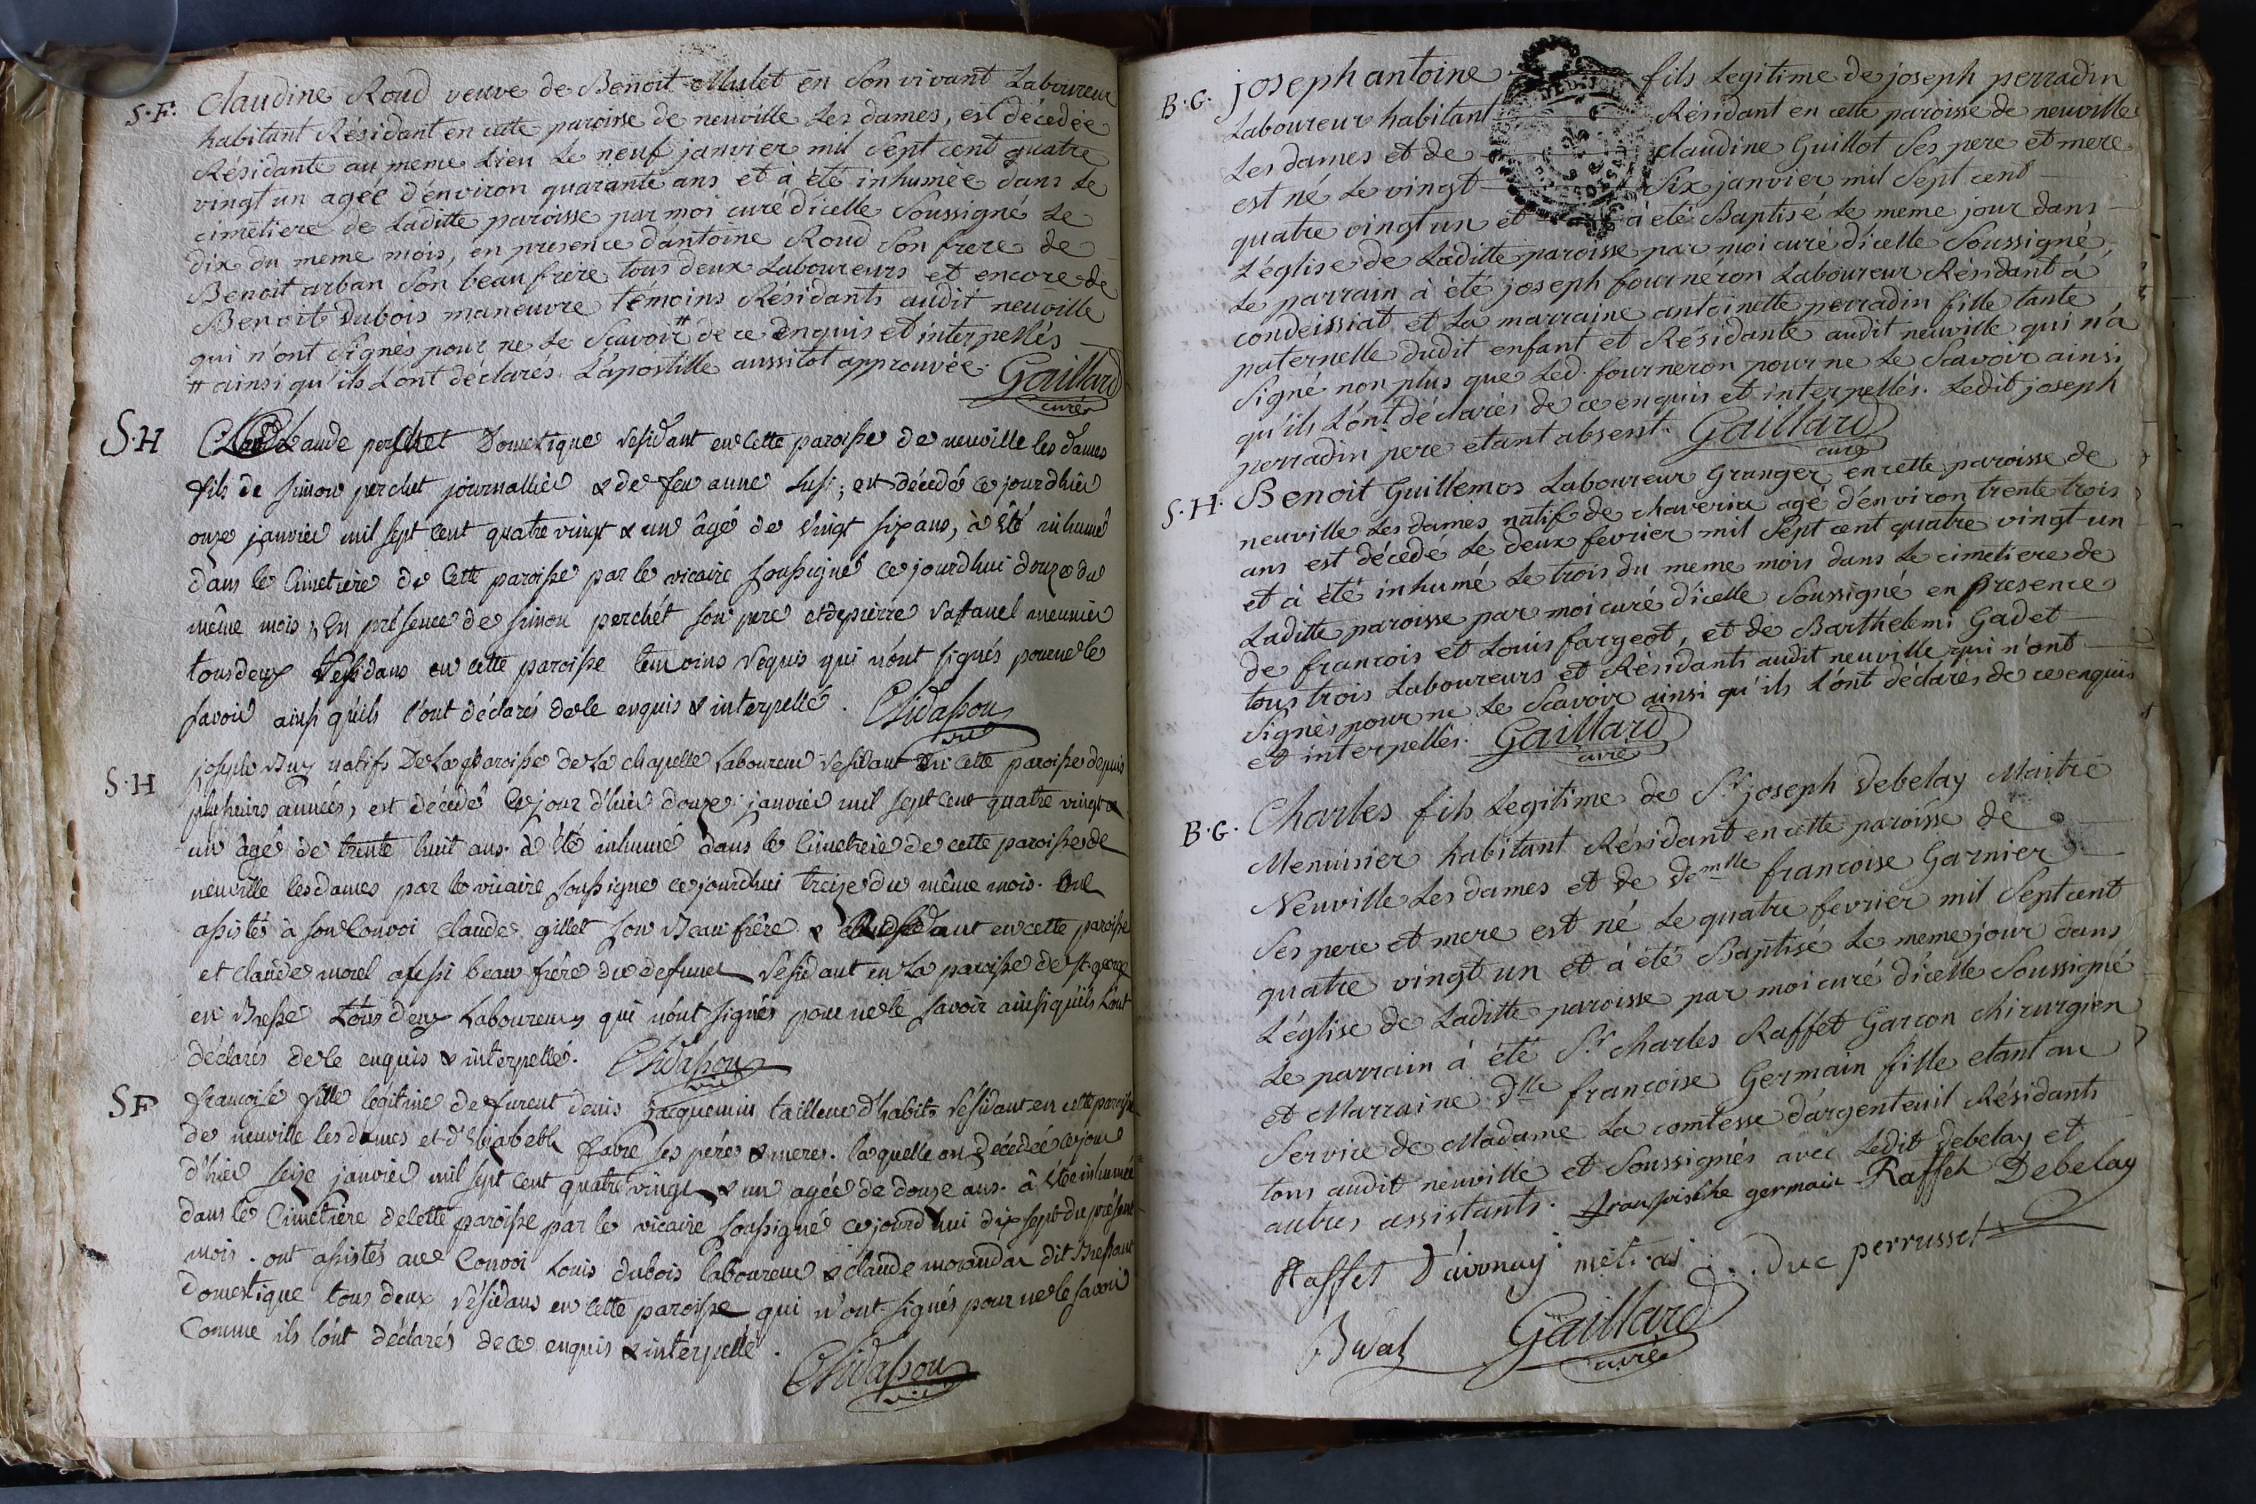 S.F. Claudine Roud veuve de Benoit Mulet en Son vivant Laboureur
habitant Résidant en cette paroisse de neuville Les dames, est décédée
Résidante au meme Lieu Le neuf janvier mil Sept cent quatre
vingt un agée d'environ quarante ans et à été inhumée dans Le
cimetiere de Laditte paroisse par moi curé dicelle Soussigné Le
dix du meme mois, en presence d'antoine Roud Son frere de
Benoit arban Son beau frère tous deux Laboureurs et encore de
Benoit Dubois maneuvre témoins Résidants audit neuville
qui n'ont Signés pour ne Le Scavoir # de ce enquis et interpellés
# ainsi qu'ils L'ont déclarés. L'apostille aussitot approuvée. Gaillard
curé
S.H Claude perchet Domestique résidant en cette paroisse de neuville les dames
fils de simon perchet journallier & de feu anne ; est décédé ce jourdhui
onze janvier mil sept cent quatre vingt & un âgé de vingt six ans, à été inhumé
dans le Cimetière de Cette paroisse par le vicaire soussigné ce jourdhui douze du
même mois, En présence de simon perchét son pere et de pierre meunier
tous deux résidans en cette paroisse temoins requis qui n'ont signés pour ne le
savoir ainsi qu'ils l'ont déclarés de ce enquis & interpellé. Chidasson
vic
S.H joseph Buy natifs De La paroisse de La chapelle Laboureur résidant En Cette paroisse depuis
plusieurs années, est décédé ce jour d'hui douze janvier mil sept cent quatre vingt &
un âgé de trente huit ans. à été inhumé dans le Cimetiere de cette paroisse de
neuville les dames par le vicaire soussigné ce jourdhui treize du même mois. Ont
assistés à son Convoi Claude gillet son Beau frère & Résidant en cette paroisse
et claude morel aussi beau frére du defunct résidant en La paroisse de St. george
en Bresse tous deux Laboureurs qui n'ont signés pour ne le savoir ainsi qu'ils L'ont
déclarés de ce enquis & interpellé. Chidasson
vic
SF francoise fille légitime de furent denis jacquemin tailleur d'habits résidant en cette paroisse
de neuville les dames et d'Elizabeth favre ses péres & meres. laquelle est décédée ce jour
d'hier seize janvier mil sept cent quatre vingt & un agée de douze ans. à été inhumée
dans le Cimetière de cette paroisse par le vicaire soussigné ce jourd'hui dix sept du présent
mois. ont assistés au Convoi Louis dubois laboureur & claude morandat dit Bressant
Domestique tous deux résidans en cette paroisse qui n'ont signés pour ne le savoir
Comme ils l'ont déclarés de ce enquis & interpellé.
Chidasson
vic
B.G. joseph antoine fils Legitime de joseph perradin
Laboureur habitant Résidant en cette paroisse de neuville
Les dames et de claudine Guillot Ses pere et mere
est né Le vingt Six janvier mil Sept cent
quatre vingt un et à été Baptisé Le meme jour dans
L'église de Laditte paroisse par moi curé dicelle Soussigné
Le parrain à été joseph fourneron Laboureur Résidant à
condeissiat et La marraine antoinette perradin fille tante
paternelle dudit enfant et Résidante audit neuville qui n'a
Signé non plus que Led. fourneron pour ne Le Scavoir ainsi
qu'ils L'ont déclarés de ce enquis et interpellés. Ledit joseph
perradin pere etant absent. Gaillard
curé
S.H. Benoit Guillemos Laboureur Granger en cette paroisse de
neuville Les dames natif de chaveria agé d'environ trente trois
ans est décédé Le deux fevrier mil Sept cent quatre vingt un
et à été inhumé Le trois du meme mois dans Le cimetiere de
Laditte paroisse par moi curé d'icelle Soussigné en presence
de francois et Louis fargeot, et de Barthelemi Gadet
tous trois Laboureurs et Résidants audit neuville qui n'ont
Signés pour ne Le Scavoir ainsi qu'ils L'ont déclarés de ce enquis
et interpellés. Gaillard
curé
B.G. Charles fils Legitime de Sr. joseph Debelay Maitre
Menuisier habitant Résidant en cette paroisse de
Neuville Les dames et de demlle francoise Garnier
Ses pere et mere est né Le quatre fevrier mil Sept cent
quatre vingt un et à été Baptisé Le meme jour dans
L'église de Laditte paroisse par moi curé d'icelle Soussigné
Le parrain à été Sr. charles Raffet Garcon chirurgien
et Marraine dlle francoise Germain fille etant au
Service de Madame La comtesse d'argenteuil Résidants
tous audit neuville et Soussignés avec Ledit Debelay et
autres assistants. germain Raffet Debelay
Raffet Duc perrusset
Gaillard
curé